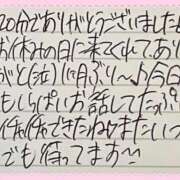 20分でありがとうございました
お休みの日に来てくれてあり
がと(泣)1ヶ月ぶり〜♪今日
もいっぱいお話してたっぷり
イチャイチャできたねまたいつ
でも待ってまぁ〜